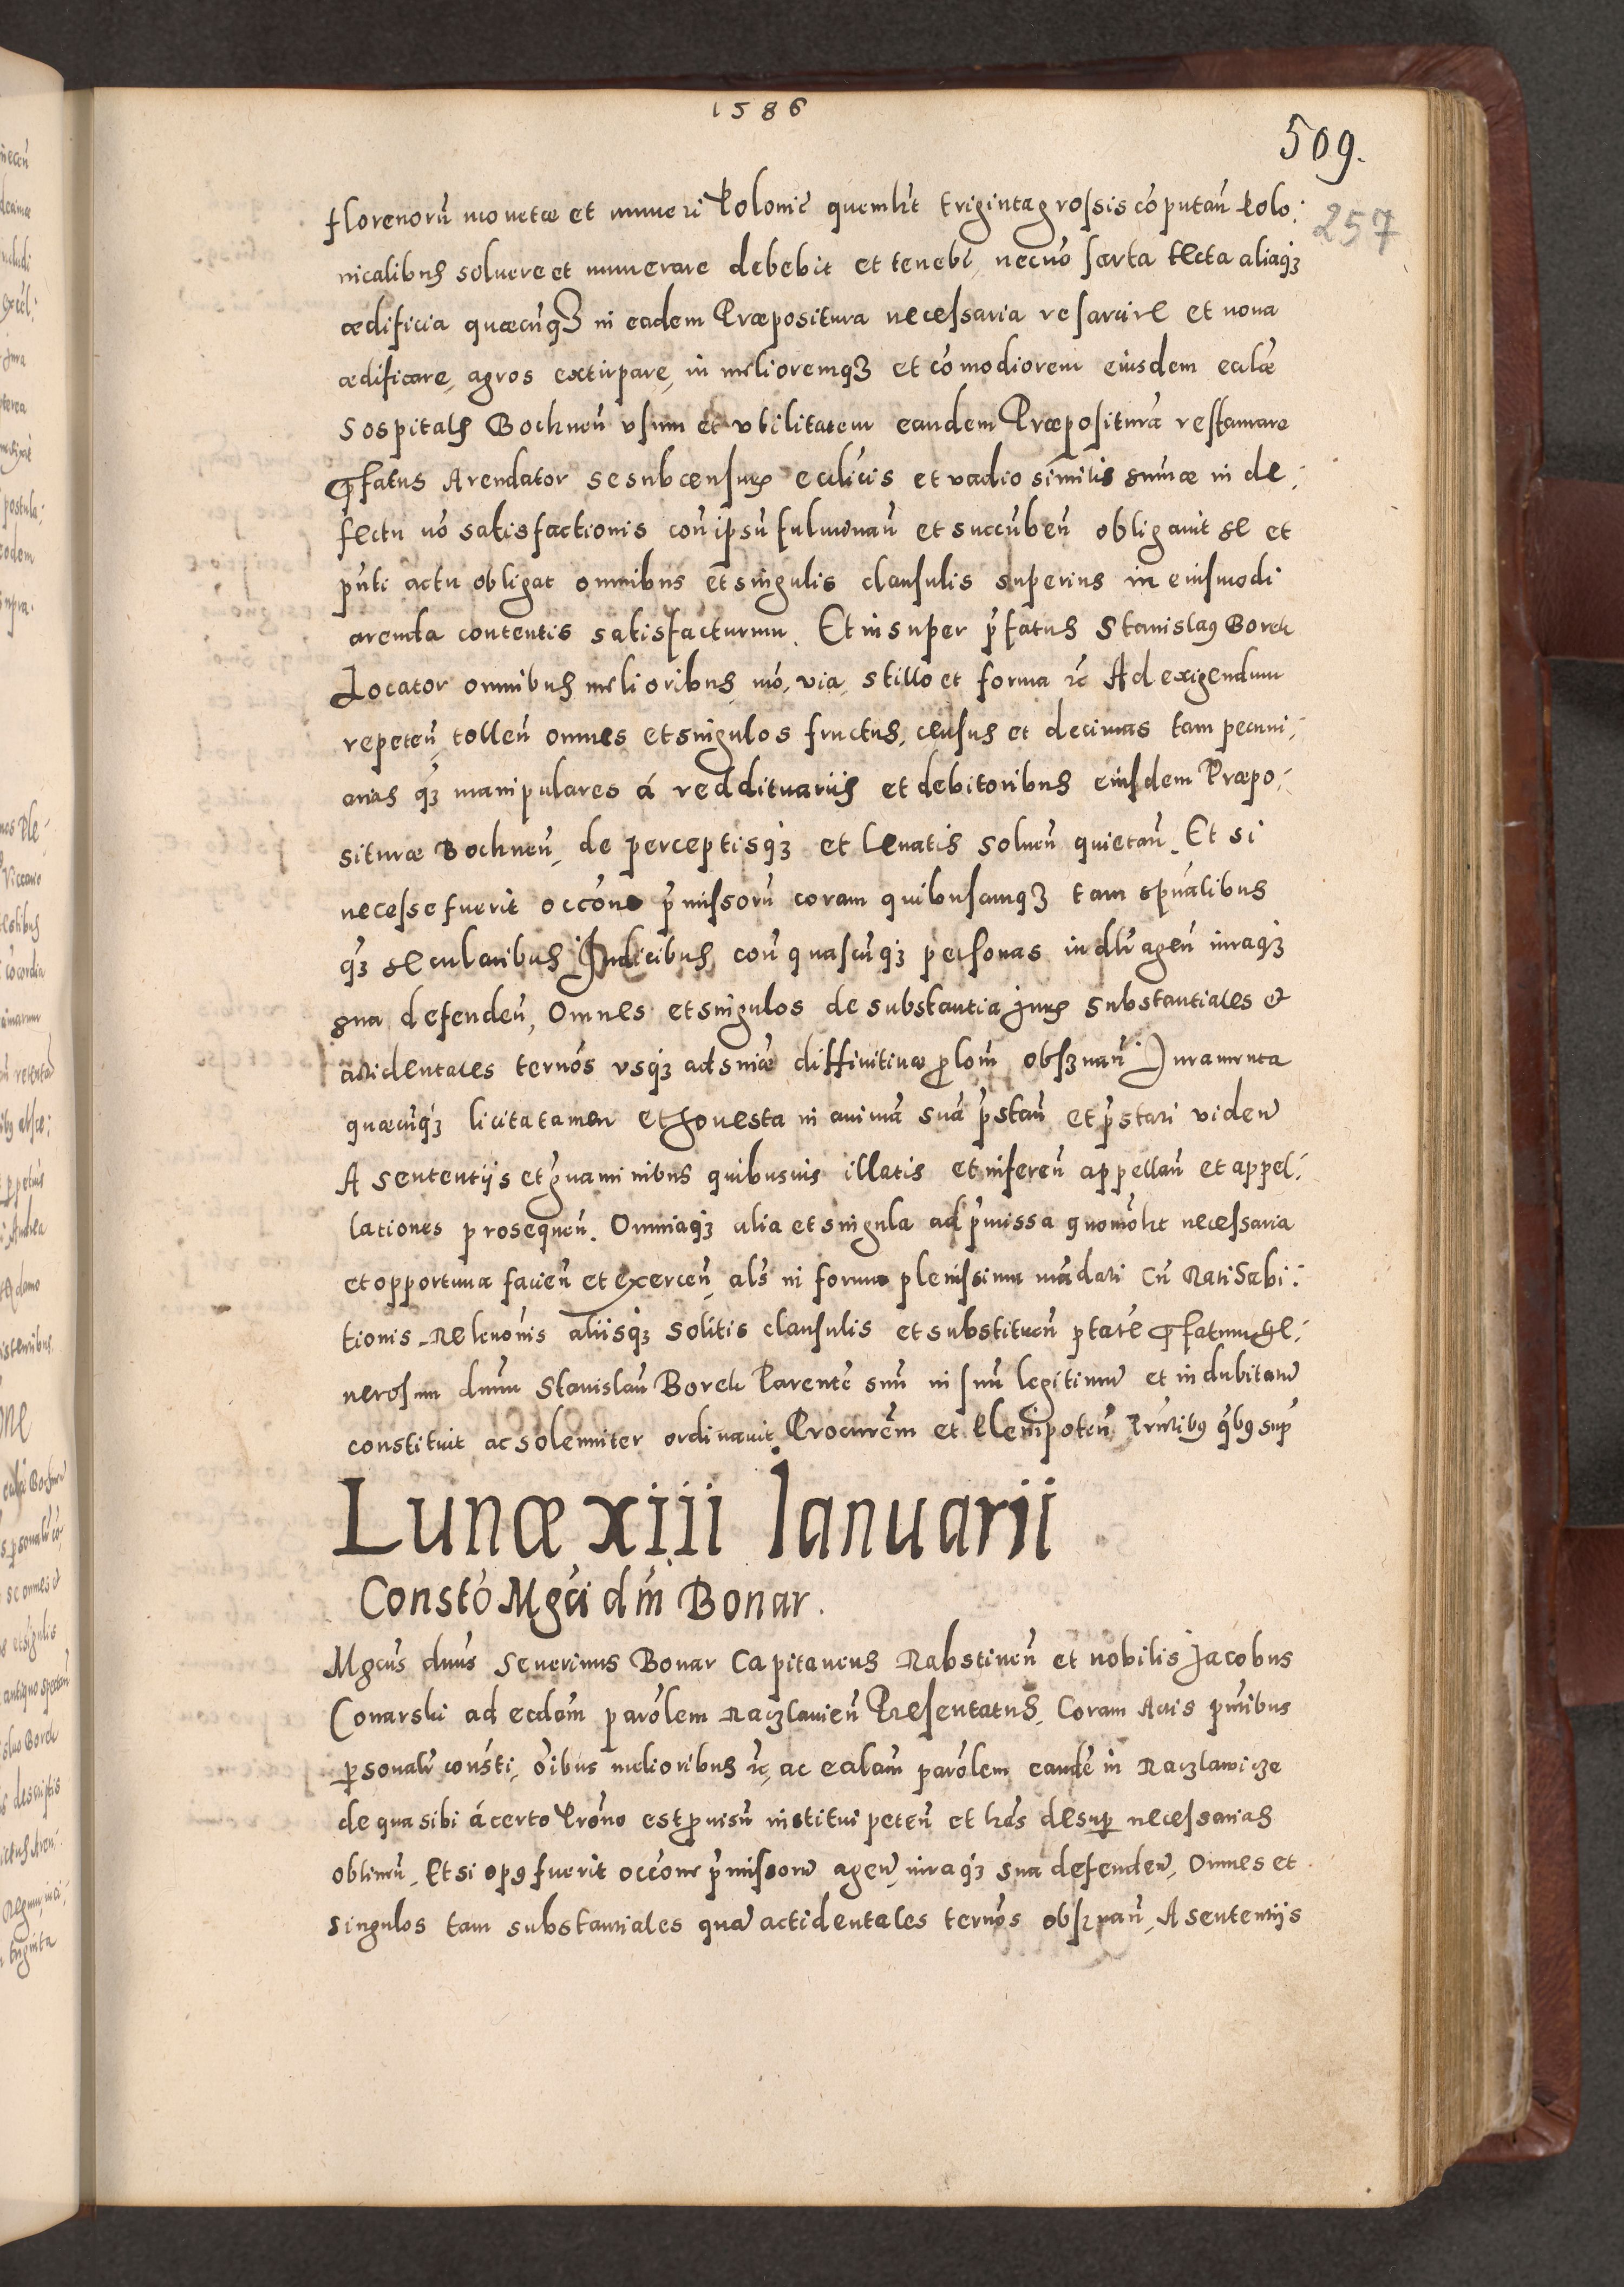 1586
509.
257
florenorũ monetæ et numeri Poloniĉ quemlt̃ triginta grossis cõputañ Polo:
nicalibus soluere et numerare debebit et tenebĩ, necnõ sarta tecta aliaqȝ
ædificia quæcũqȝ in eadem Præpositura necessaria resarcire et noua
ædificare, agros extirpare, in melioremqȝ et cõmodiorem eiusdem ecclæ
Hospitalis Bochneñ vsum et vtilitatem eandem Præpositurã restaurare
p̃fatus Arendator se sub censuris eccliĉis et vadio similis summæ in de:
fectu nõ satisfactionis coñ ipsũ fulminañ et succũbeñ obligauit se et
pñti actu obligat omnibus et singulis clausulis superius in eiusmodi
arenda contentis satisfacturum. Et insuper p̃fatus Stanislaꝰ Borek
Locator omnibus melioribus mõ, via, stillo et forma ꝛc̃ Ad exigendum
repeteñ, tolleñ omnes et singulos fructus, census et decimas tam pecuni:
arias q̃ȝ manipulares á reddituariis et debitoribus eiusdem Præpo:
situræ Bochneñ, de perceptisqȝ et leuatis solueñ quietañ. Et si
necesse fuerit occõne p̃missorũ coram quibuscunqȝ tam spũalibus
q̃ȝ secularibus Iudicibus, coñ quascũqȝ personas indr̃ ageñ iuraqȝ
sua defendeñ, Omnes et singulos de substantia juris substantiales &
accidentales termõs vsqȝ ad sniæ diffinitiuæ prolom̃ obseruañ: Iuramenta
quæcũqȝ licita tamen et honesta in animã suã p̃stañ et p̃stari videñ
A sententijs et grauaminibus quibusuis illatis et infereñ appellañ et appel:
lationes prosequeñ. Omniaqȝ alia et singula ad p̃missa quomõlt̃ necessaria
et opportuna facieñ et exerceñ, als̃ in forma plenissimi mãdati Cũ Rati Habi:
tionis Releuõnis aliisqȝ solitis clausulis et substitueñ ptãte p̃fatum Ge:
nerosum dnũm Stanislaũ Borek Parentẽ suũ in suũ legitimũ et indubitatũ
constituit ac solemniter ordinauit Procurẽm et Plenipoteñ Pñtibꝰ qbꝰ sup̃
Lunæ xiii Ianuarii
Constõ Mgci dñi Bonar.
Mgcus dnus Seuerinus Bonar Capitaneus Rabstineñ et nobilis Jacobus
Conarski ad ecclam̃ parõlem Raczlauieñ Præsentatus, Coram Actis pñtibus
personalr̃ constĩ, oĩbus melioribus ꝛc̃, ac ecclam̃ parõlem eandẽ in Raczlawicze
de qua sibi á certo Prõno est prouisũ institui peteñ et lr̃as desup̃ necessarias
obtineñ, Et si opꝰ fuerit occõne p̃missorũ ageñ, iuraqȝ sua defendeñ, Omnes et
singulos tam substantiales quã accidentales termõs obseruañ, A sententijs